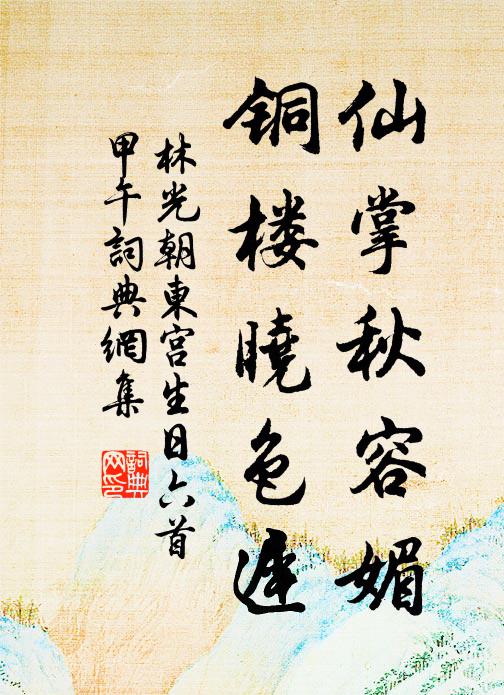 仙掌秋容媚
铜楼曉色遲
林光朝東宮生日六首
甲午詞典網集
詞典网印